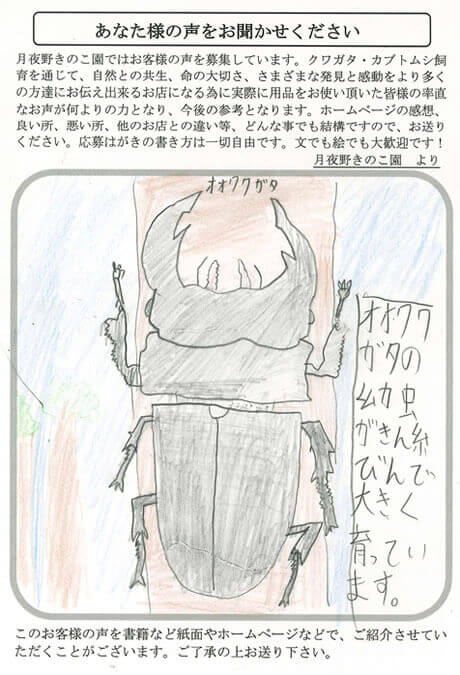 あなた様の声をお聞かせください
月夜野きのこ園ではお客様の声を募集しています。クワガタ・カブトムシ飼
育を通じて、自然との共生、命の大切さ、さまざまな発見と感動をより多く
の方達にお伝え出来るお店になる為に実際に用品をお使い頂いた皆様の率直
なお声が何よりの力となり、今後の参考となります。ホームページの感想、
良い所、悪い所、他のお店との違い等、どんな事でも結構ですので、お送り
ください。応募はがきの書き方は一切自由です。文でも絵でも大歓迎です！
月夜野きのこ園　より
オオクワガタ
オオクワ
ガタの
幼虫
がきん糸
びんで
大きく
育ってい
ます。
このお客様の声を書籍など紙面やホームページなどで、ご紹介させてい
ただくことがございます。ご了承の上お送り下さい。